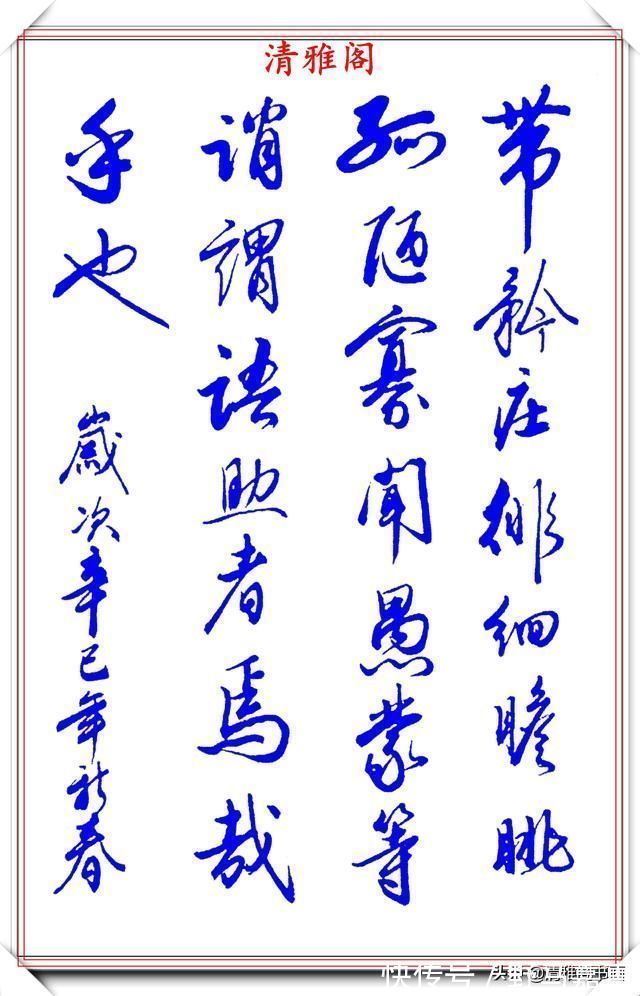 清雅阁
带矜庄徘徊瞻眺
孤陋寡闻愚蒙等
诮謂语助者焉哉
乎也
歲次辛巳年新春
快传号 /
头条 @